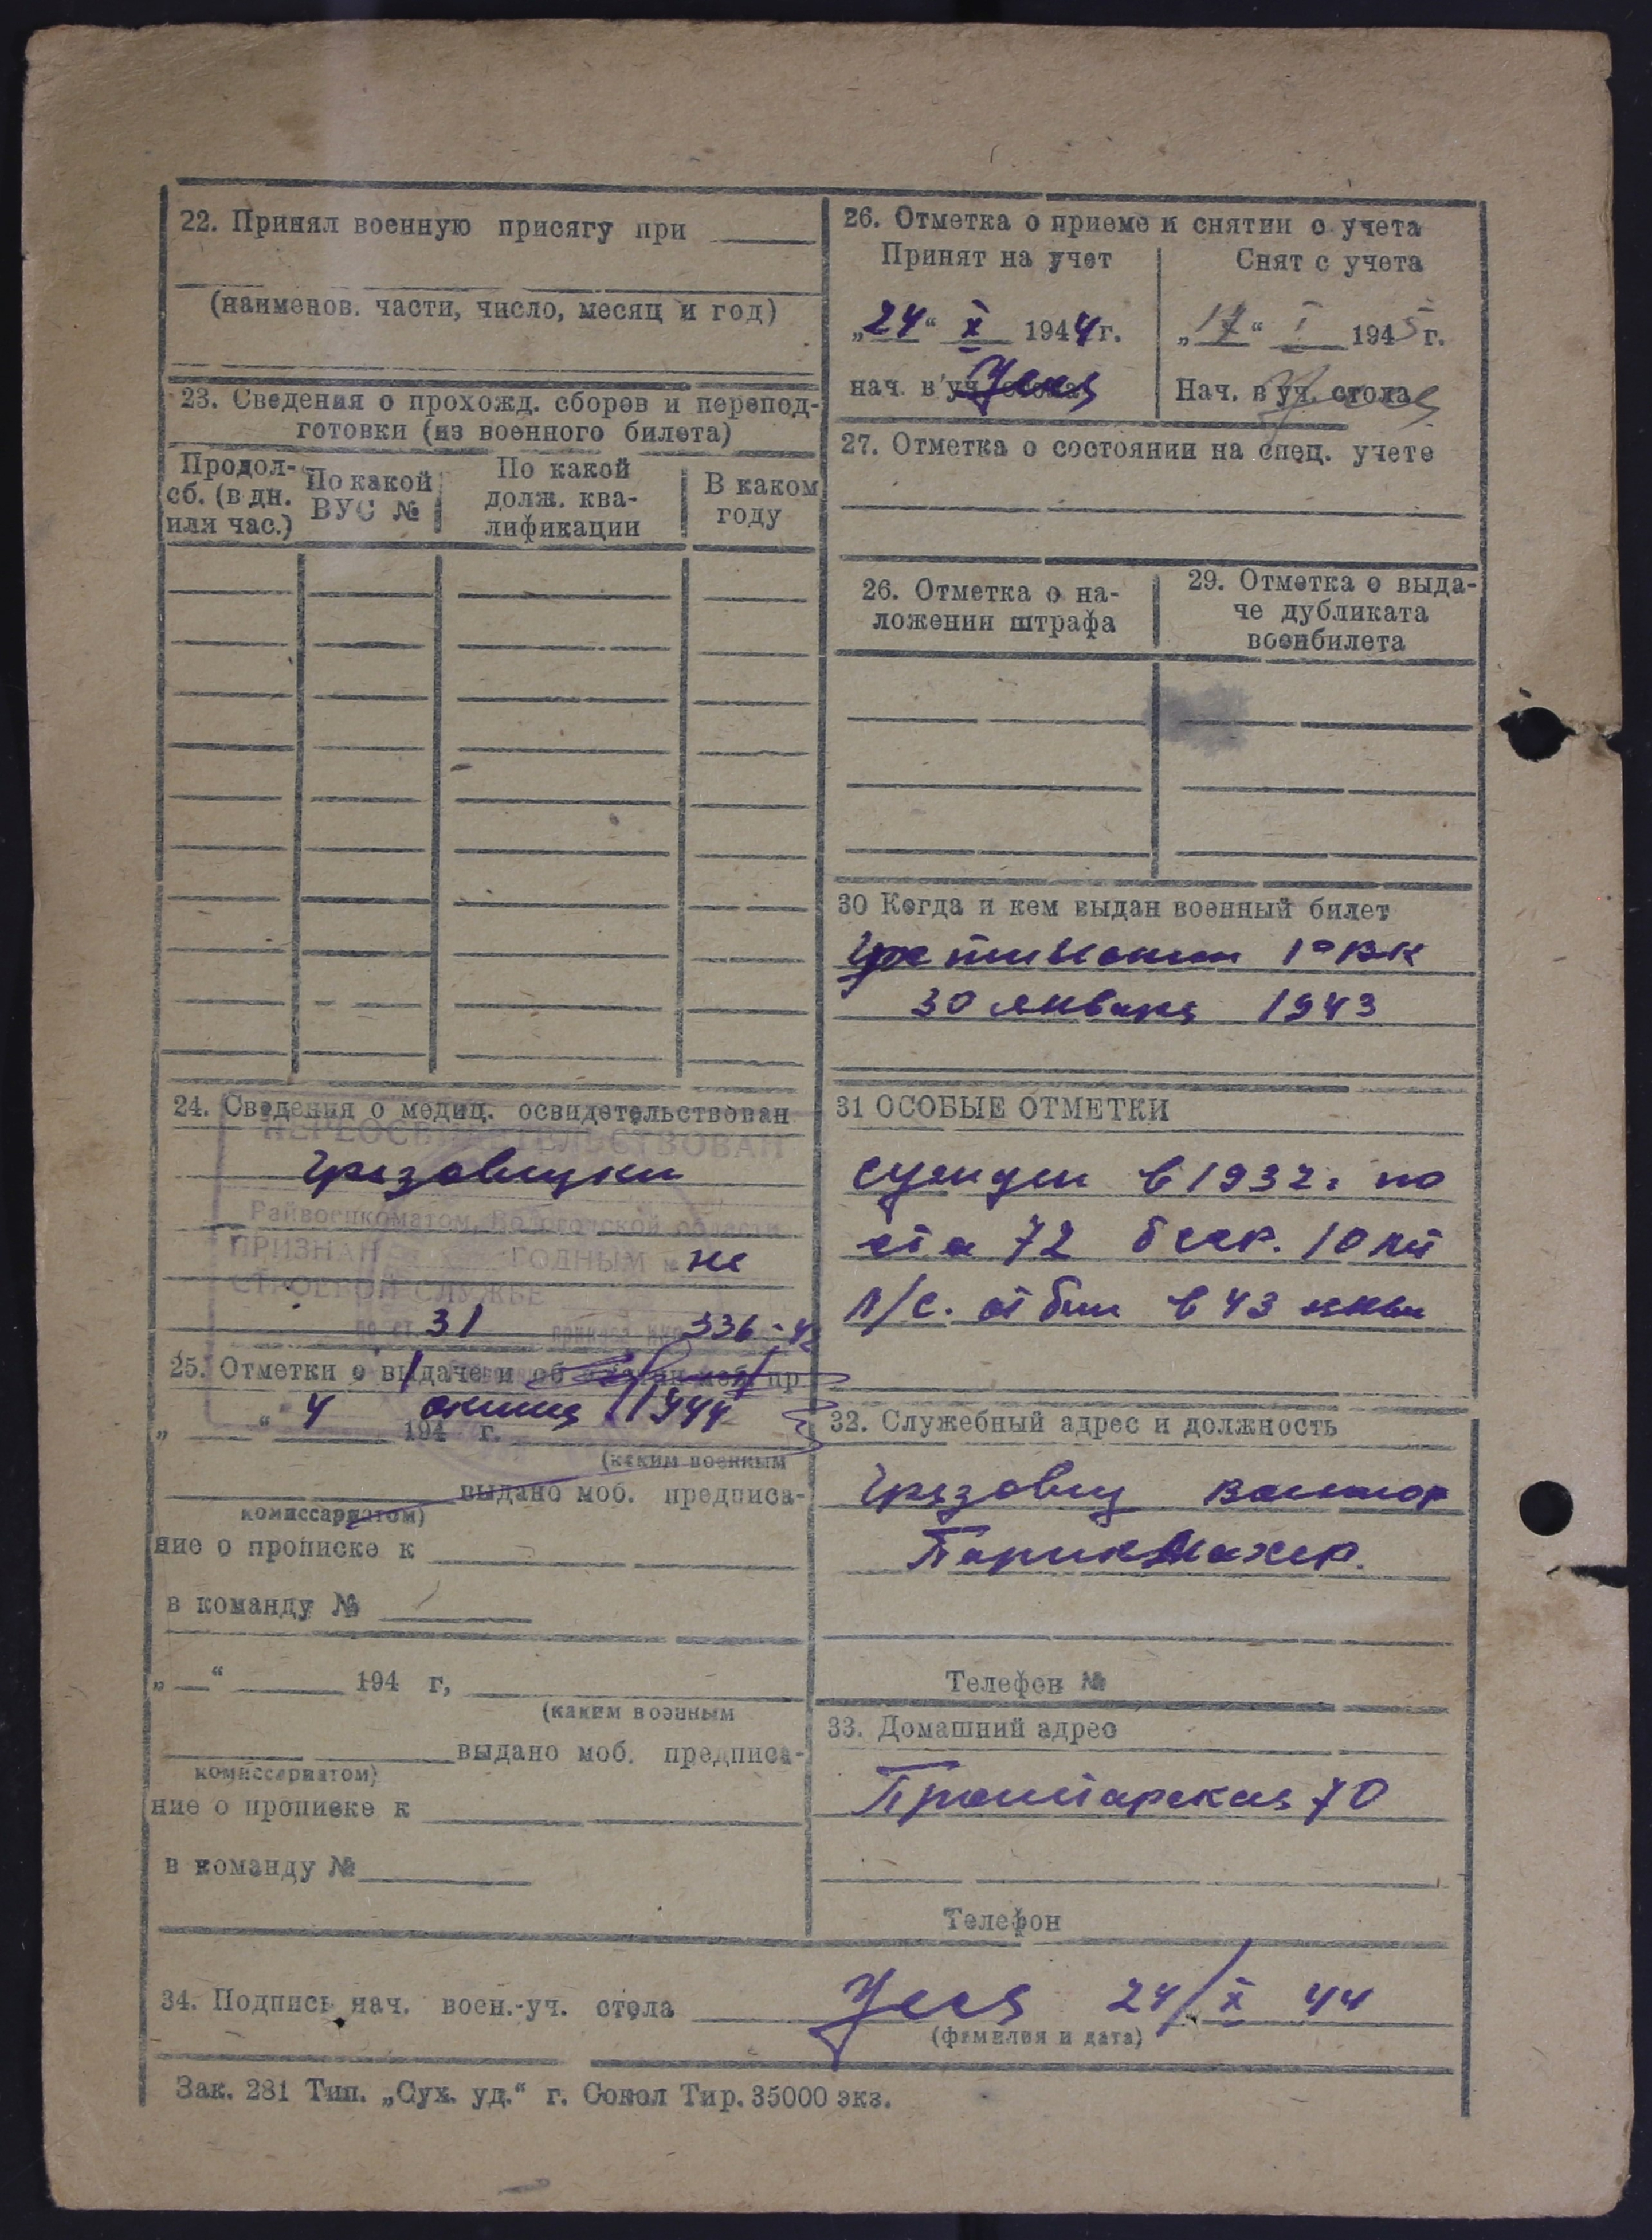 22. Принял военную присягу при
(наименов. части, число, месяц и год)
23. Сведения о прохожд. сборов и перепод-
готовки (из военного билета)
Продол-
сб. (в дн.
или час.)
По какой
ВУС №
По какой
долж. ква-
лификации
В каком
году
24. Сведения о медиц. освидетельствован
ПЕРЕОСВИДЕТЕЛЬСТВОВАН
Грязовецким
Райвоенкоматом, Вологодской области
ПРИЗНАН ГОДНЫМ не
СТРОЕВОЙ СЛУЖБЕ
по ст. 31 336-42
25. Отметки о выдаче и об
„ “ 4 1944
194 г.
(каким военным
выдано моб. предписа-
комиссариатом)
ние о прописке к
в команду №
„ “ 194 г,
(каким военным
выдано моб. предписа-
комиссариатом)
ние о прописке к
в команду №
26. Отметка о приеме и снятии с учета
Принят на учет
„24“ X 1944г.
нач. в уч. стола
Снят с учета
„17“ I 1945г.
Нач. в уч. стола
27. Отметка о состоянии на спец. учете
26. Отметка о на-
ложении штрафа
29. Отметка о выда-
че дубликата
военбилета
30 Когда и кем выдан военный билет
РВК
30 января 1943
31 ОСОБЫЕ ОТМЕТКИ
сужден в 1932г по
ст 72 10 лет
п/с. отбыл в 43
32. Служебный адрес и должность
Грязовец
Парикмахер.
Телефон №
33. Домашний адрес
Пролетарская 70
Телефон
34. Подпись нач. воен.-уч. стола 24/X 44
(фамилия и дата)
Зак. 281 Тип. „Сух. уд.“ г. Сокол Тир. 35000 экз.